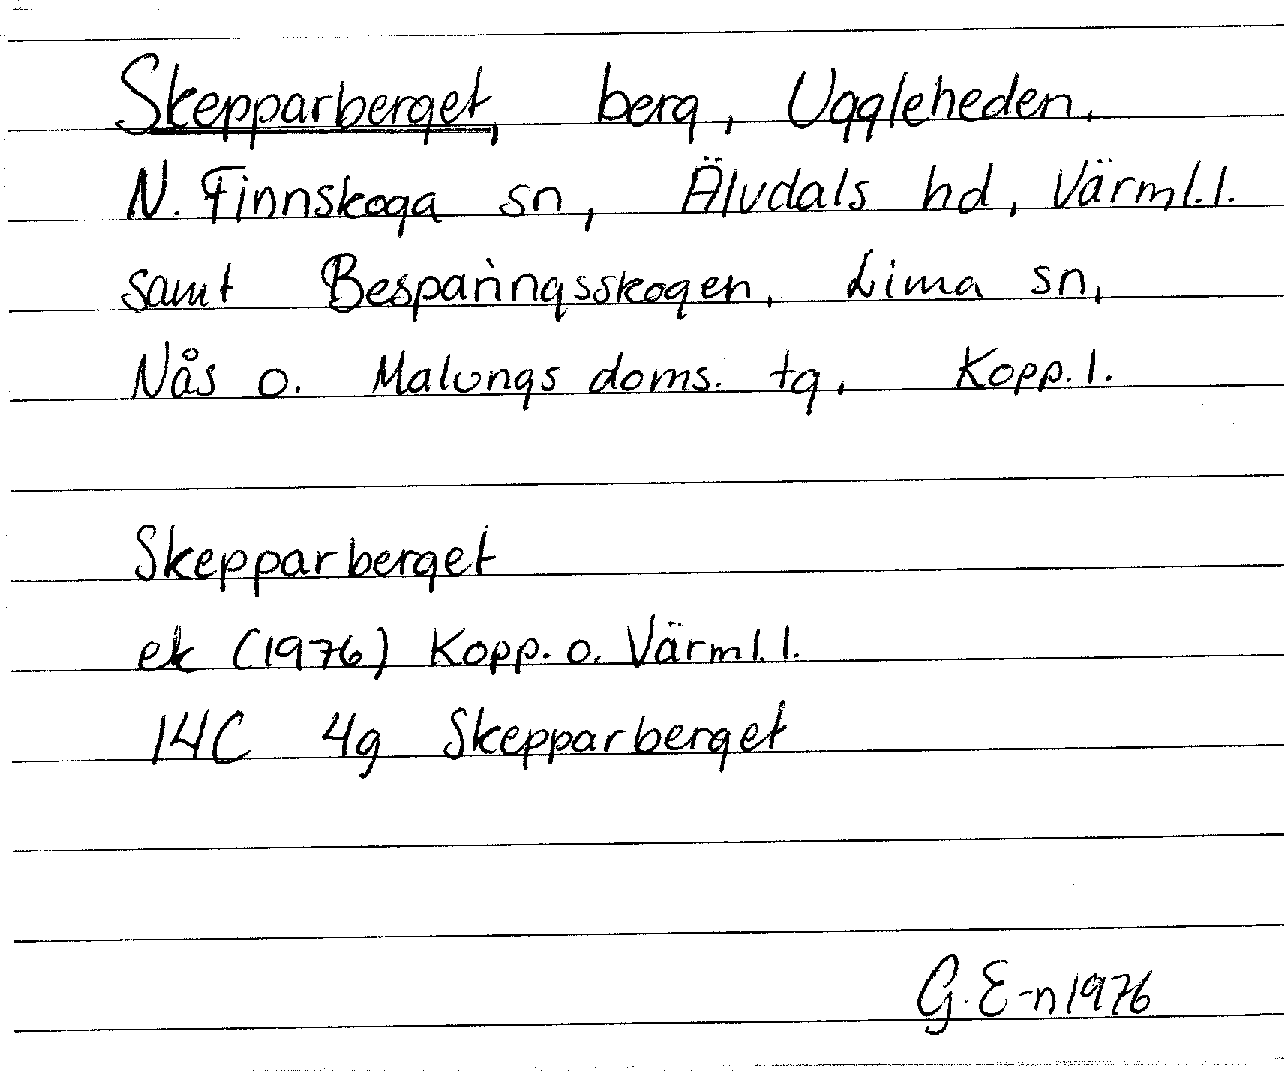 Skepparberget, berg, Uggleheden,
N. Finnskoga sn, Älvdals hd, Värml.l.
samt Besparingsskogen, Lima sn,
Nås o. Malungs doms. tg, Kopp.l.
Skepparberget
ek (1976) Kopp. o. Värml.l.
14C 4g Skepparberget
G.E-n 1976